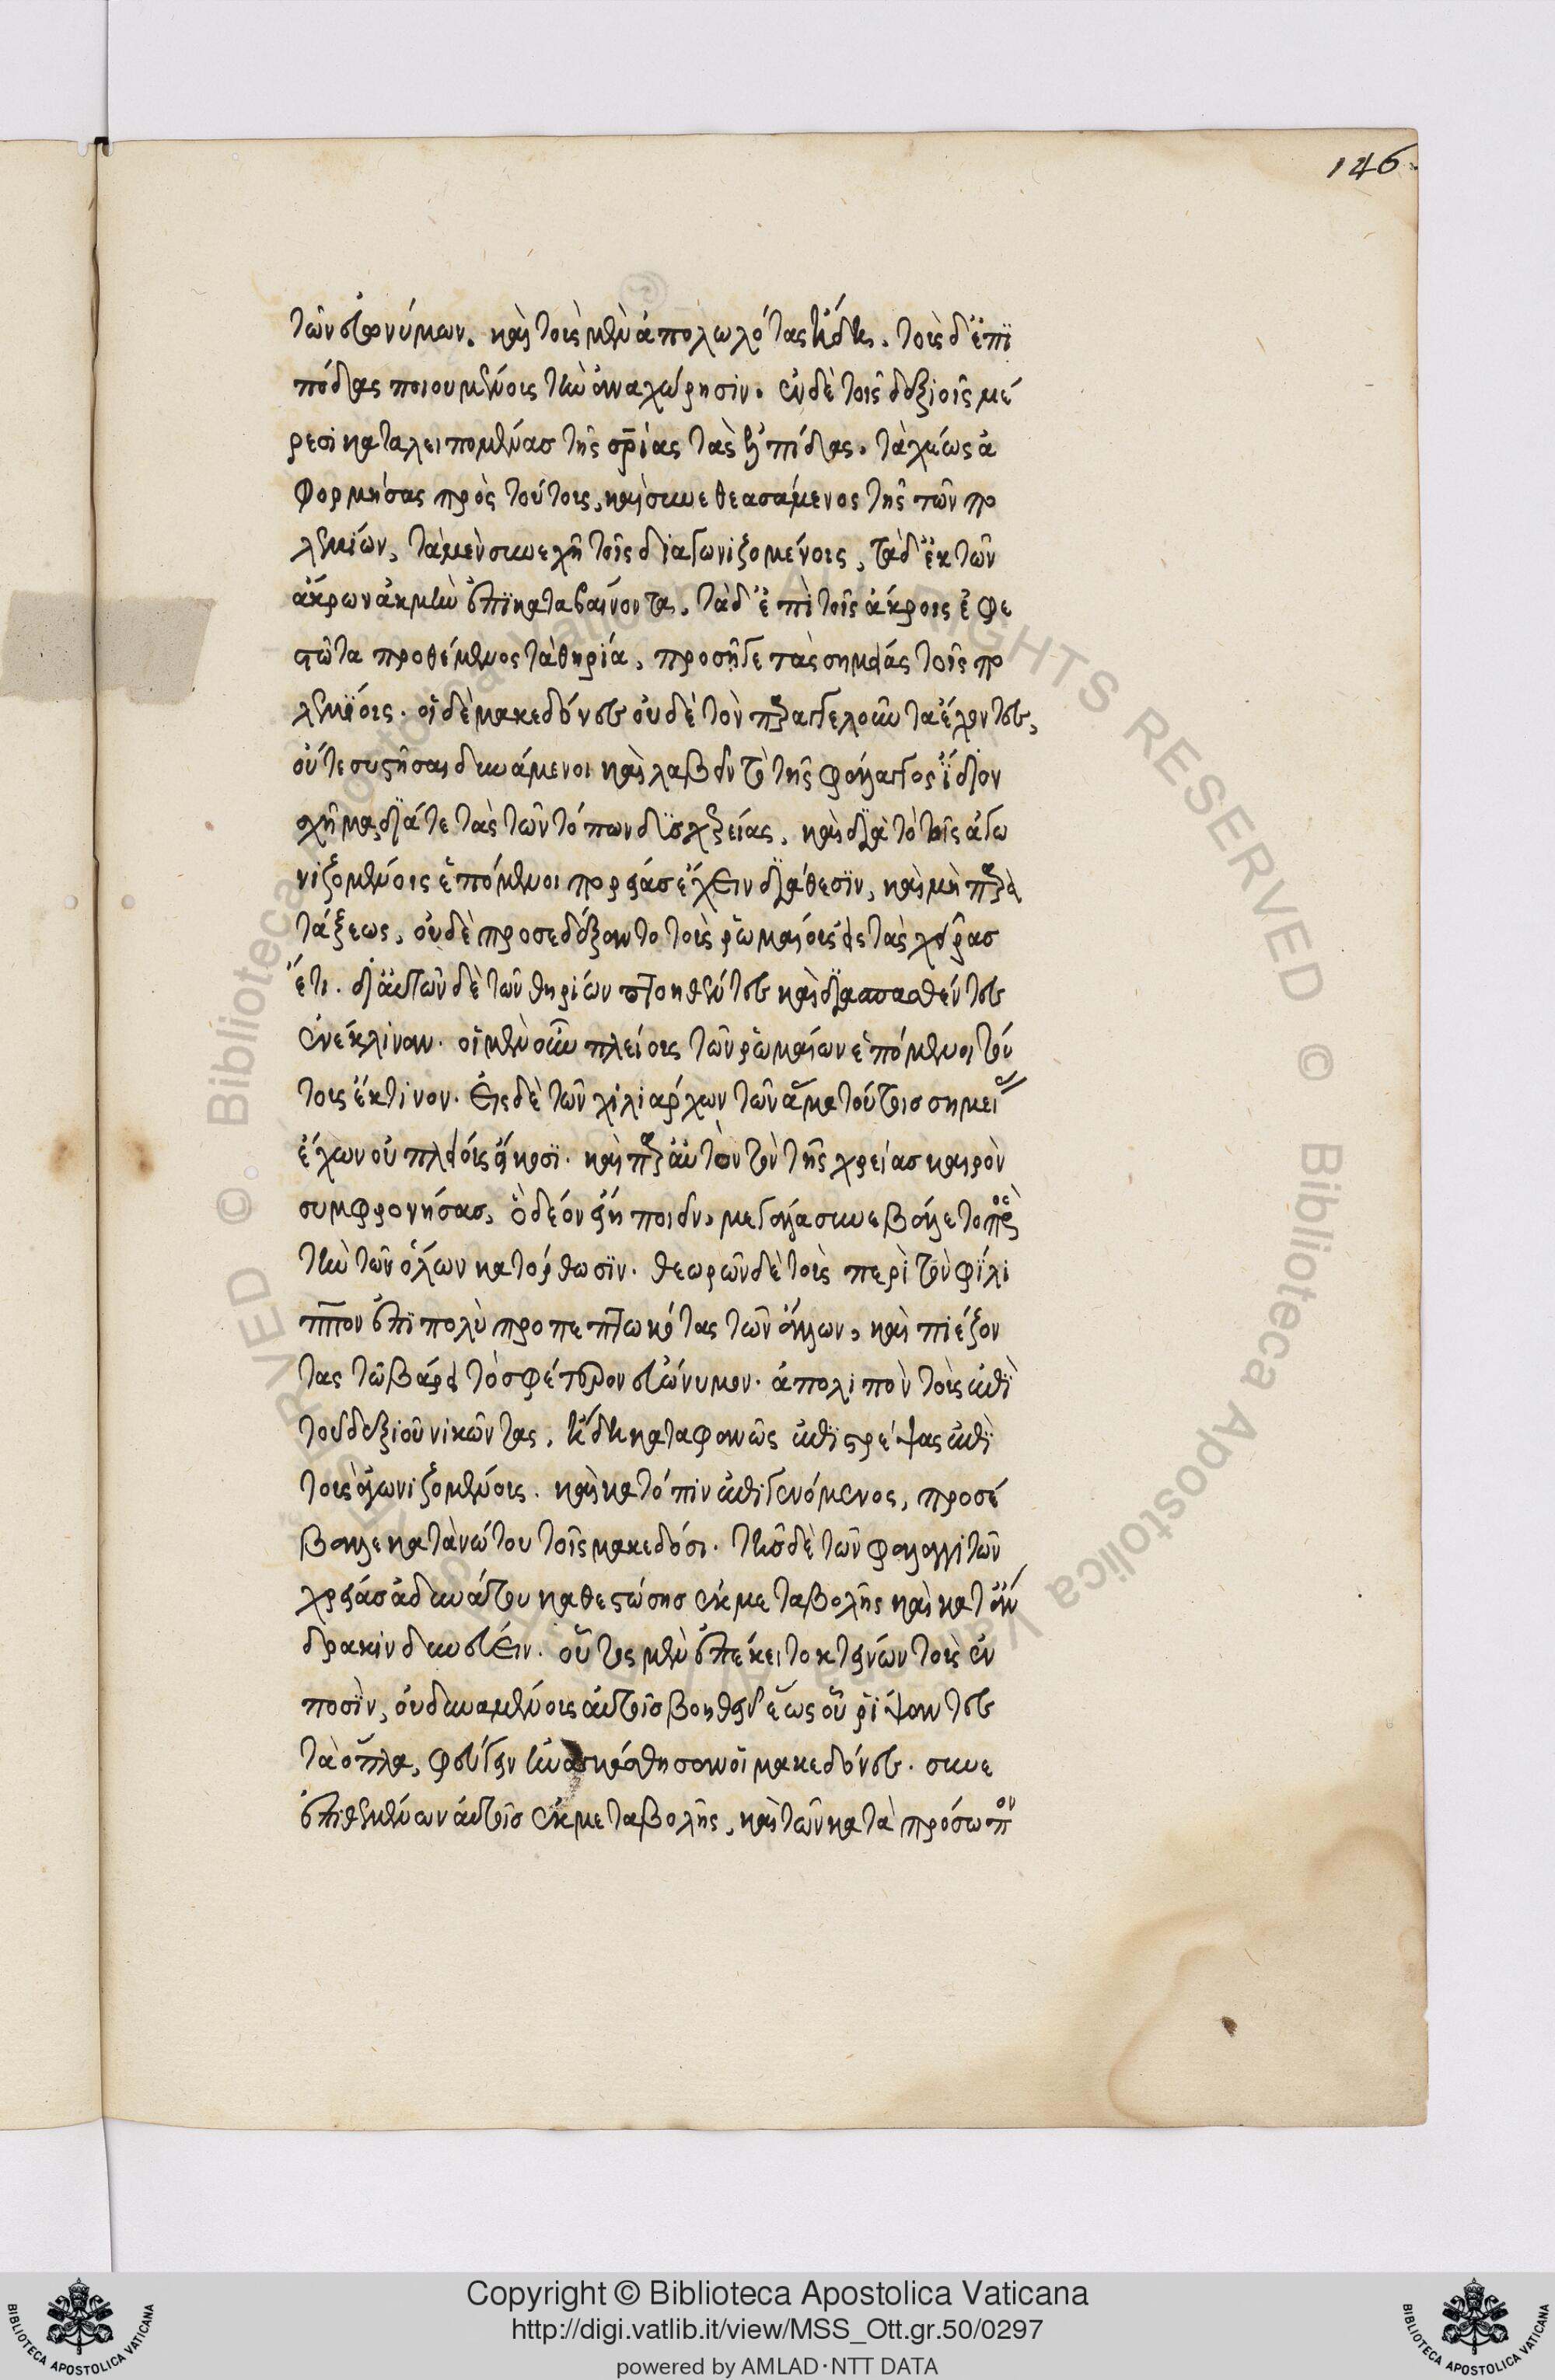 τῶν εὐωνύμων. καὶ τοὺς μὲν ἀπολωλότας ἤδη, τοὺς δ' ἐπὶ
πόδας ποιουμένους τὴν ἀναχώρησιν. ἐν δὲ τοῖς δεξιοῖς μέ
ρεσι καταλειπομένας τῆς σρίας τὰς ἐλπίδας. ταχέως ἀ
φορμήσας πρὸς τούτους, καὶ συνεθεασάμενος τῆς τῶν πο
λεμίων, τὰ μὲν συνεχῆ τοῖς διαγωνιζομένοις, τὰ δ' ἐκ τῶν
ἄκρων ἀκμὴν ἐπικαταβαίνοντα, τὰ δ' ἐπὶ τοῖς ἄκροις ἐφε
στῶτα προθέμενος τὰ θηρία, προσῆγε τὰς σημείας τοῖς πο
λεμίοις. οἱ δὲ μακεδόνες οὐδὲ τὸν παραγγελοῦντα ἔχοντες,
οὔτε συστῆσαι δυνάμενοι καὶ λαβεῖν τὸ τῆς φάλαγγος ἴδιον
σχῆμα, διά τε τὰς τῶν τόπων δυσχερείας, καὶ διὰ τὸ τοῖς ἀγω
νιζομένοις ἑπόμενοι πορείας ἔχειν διάθεσιν, καὶ μὴ παρα
τάξεως, οὐδὲ προσεδέξαντο τοὺς ῥωμαίους εἰς τὰς χεῖρας
ἔτι. δι' αὐτῶν δὲ τῶν θηρίων πτοηθέντες καὶ διασπασθέντες
ἐνέκλιναν. οἱ μὲν οὖν πλείους τῶν ῥωμαίων ἑπόμενοι τού
τοις ἔκτινον. εἷς δὲ τῶν χιλιάρχων τῶν ἅμα τούτοις σημείας
ἔχων οὐ πλείους εἴκοσι. καὶ παρ' αὐτὸν τὸν τῆς χρείας καιρὸν
συμφρονήσας, ὃ δέον εἴη ποιεῖν, μεγάλα συνεβάλετο πρὸς
τὴν τῶν ὅλων κατόρθωσιν. θεωρῶν δὲ τοὺς περὶ τὸν φίλι
ππον ἐπὶ πολὺ προπεπτωκότας τῶν ἄλλων, καὶ πιέζον
τας τῷ βάρει τὸ σφέτερον εὐώνυμον. ἀπολιπὼν τοὺς ἐπὶ
τοῦ δεξιοῦ νικῶντας, ἤδη καταφανῶς ἐπιστρέψας ἐπὶ
τοὺς ἀγωνιζομένους. καὶ κατόπιν ἐπιγενόμενος, προσέ
βαλλε κατὰ νώτου τοῖς μακεδόσι. τῆς δὲ τῶν φαλαγγιτῶν
χρείας ἀδυνάτου καθεστώσης ἐκ μεταβολῆς καὶ κατ' ἄν
δρα κινδυνεύειν. οὗτος μὲν ἐπέκειτο κτείνων τοὺς ἐν
ποσὶν, οὐ δυναμένους αὐτοῖς βοηθεῖν ἕως οὗ ῥίψαντες
τὰ ὅπλα, φεύγειν ἠναγκάσθησαν οἱ μακεδόνες. συνε
πιθεμένων αὐτοῖς ἐκ μεταβολῆς, καὶ τῶν κατὰ πρόσωπον
146
Copyright © Biblioteca Apostolica Vaticana
http://digi.vatlib.it/view/MSS_Ott.gr.50/0297
powered by AMLAD·NTT DATA